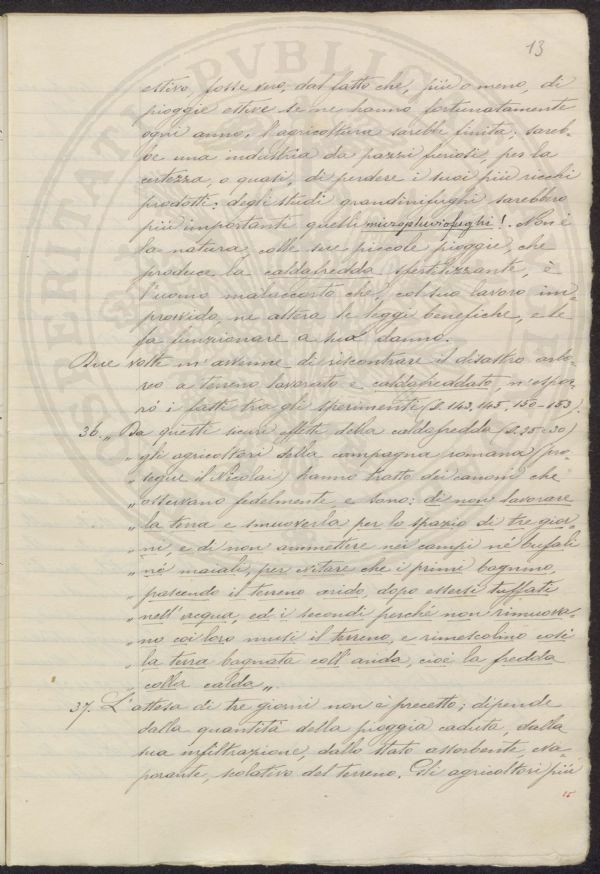 13
estivo, fosse vero, dal fatto che, più o meno, di
pioggie estive se ne hanno fortunatamente
ogni anno, l'agricoltura sarebbe finita; sareb-
be una industria da pazzi furiosi, per la
certezza, o quasi, di perdere i suoi più ricchi
prodotti; degli studi grandinifughi sarebbero
più importanti quelli micropluviofughi! Non è
la natura, colle sue piccole pioggie, che
produce la caldafredda sfertilizzante, è
l'uomo malaccorto che, col suo lavoro im-
provvido ne altera le leggi benefiche, e le
fa funzionare a suo danno.
Due volte m'avvenne di riscontrare il disastro arbo-
reo a terreno lavorato e caldafreddato, n'espor-
rò i fatti tra gli sperimenti (§. 143, 145, 150-153).
36. „ Da questi sicuri effetti della caldafredda (§. 25-30)
„ gli agricoltori della campagna romana (pro-
„ segue il Nicolai) hanno tratto dei canoni che
„ osservano fedelmente e sono: di non lavorare
„ la terra e smuoverla per lo spazio di tre gior-
„ ni, e di non ammettere nei campi né bufali
„ né maiali, per evitare che i primi bagnino,
„ pascendo il terreno arido, dopo essersi tuffati
„ nell'acqua, ed i secondi perché non rimuova-
„ no coi loro musi il terreno, e rimescolino così
„ la terra bagnata coll'arida, cioè la fredda
„ colla calda „
37. L'attesa di tre giorni non è precetto; dipende
dalla quantità della pioggia caduta, dalla
sua infiltrazione, dallo stato assorbente, eva-
porante, scolativo del terreno. Gli agricoltori più
15